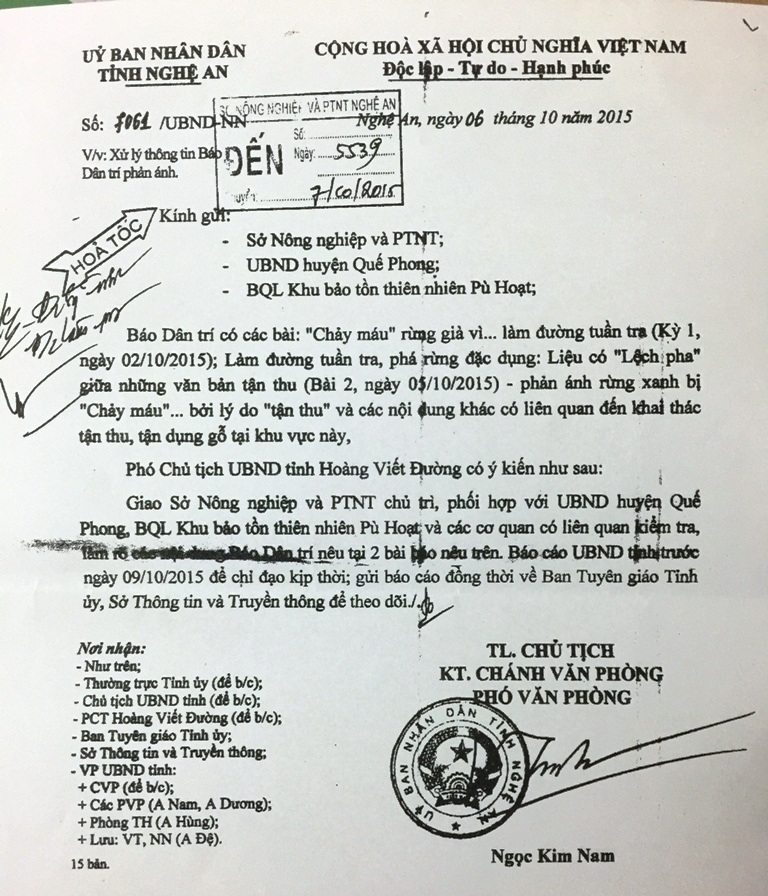 UỶ BAN NHÂN DÂN
TỈNH NGHỆ AN
CỘNG HOÀ XÃ HỘI CHỦ NGHĨA VIỆT NAM
Độc lập - Tự do - Hạnh phúc
Số: 7061 /UBND-NN
Nghệ An, ngày 06 tháng 10 năm 2015
V/v: Xử lý thông tin Báo
Dân trí phản ánh.
SỞ NÔNG NGHIỆP VÀ PTNT NGHỆ AN
ĐẾN
Số:
Ngày: 5539
7/10/2015
HOẢ TỐC
Kính gửi:
- Sở Nông nghiệp và PTNT;
- UBND huyện Quế Phong;
- BQL Khu bảo tồn thiên nhiên Pù Hoạt;
Báo Dân trí có các bài: "Chảy máu" rừng già vì... làm đường tuần tra (Kỳ 1,
ngày 02/10/2015); Làm đường tuần tra, phá rừng đặc dụng: Liệu có "Lệch pha"
giữa những văn bản tận thu (Bài 2, ngày 05/10/2015) - phản ánh rừng xanh bị
"Chảy máu"... bởi lý do "tận thu" và các nội dung khác có liên quan đến khai thác
tận thu, tận dụng gỗ tại khu vực này,
Phó Chủ tịch UBND tỉnh Hoàng Viết Đường có ý kiến như sau:
Giao Sở Nông nghiệp và PTNT chủ trì, phối hợp với UBND huyện Quế
Phong, BQL Khu bảo tồn thiên nhiên Pù Hoạt và các cơ quan có liên quan kiểm tra,
làm rõ các nội dung Báo Dân trí nêu tại 2 bài báo nêu trên. Báo cáo UBND tỉnh trước
ngày 09/10/2015 để chỉ đạo kịp thời; gửi báo cáo đồng thời về Ban Tuyên giáo Tỉnh
ủy, Sở Thông tin và Truyền thông để theo dõi./.
Nơi nhận:
- Như trên;
- Thường trực Tỉnh ủy (để b/c);
- Chủ tịch UBND tỉnh (để b/c);
- PCT Hoàng Viết Đường (để b/c);
- Ban Tuyên giáo Tỉnh ủy;
- Sở Thông tin và Truyền thông;
- VP UBND tỉnh:
+ CVP (để b/c);
+ Các PVP (A Nam, A Dương);
+ Phòng TH (A Hùng);
+ Lưu: VT, NN (A Đệ).
15 bản.
TL. CHỦ TỊCH
KT. CHÁNH VĂN PHÒNG
PHÓ VĂN PHÒNG
UỶ BAN NHÂN DÂN TỈNH NGHỆ AN
Ngọc Kim Nam